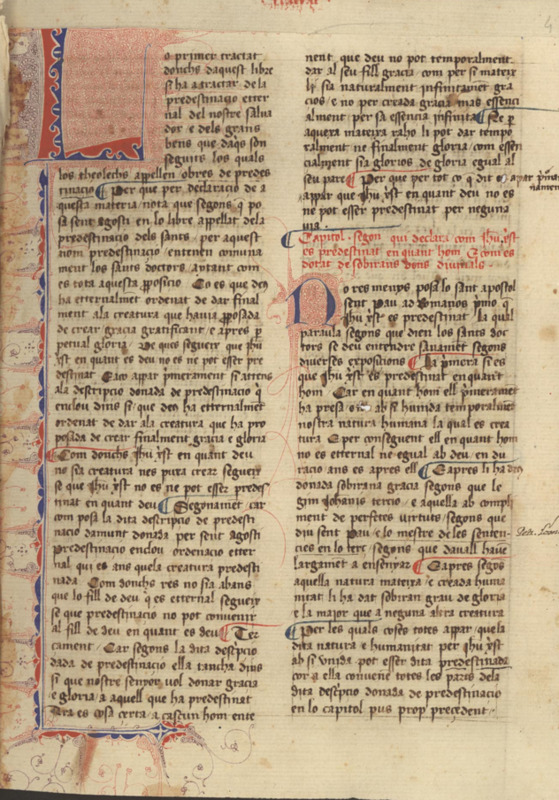 Tractat
4
Lo primer tractat
donchs daquest libre
si ha a tractar de la
predestinacio eter
nal del nostre salua
dor e dels grans
bens que daqs son
seguits los quals
los theolechs appellen obres de predes
tinacio Per que per declaracio de a
questa materia nota que segons q̄ po
sa sent agosti en lo libre appellat de la
predestinacio dels sants per aquest
nom predestinacio entenen comuna
ment los sants doctors aytant com
es tota aquesta pposicio Ço es que deu
ha etternalmet ordenat de dar final
ment a la creatura que hauia pposada
de crear gracia gratificant e apres p
petual gloria De que s segueix que Jhu
xst en quant es deu no es ne pot esser pre
destinat Caço appar pmerament si attens
a la descripcio donada de predestinacio q̄
enclou dins si que deu ha etternalmet
ordenat de dar a la creatura que ha pro
posada de crear finalment gracia e gloria
Com donchs Jhu xst en quant deu
no sia creatura nes pura crear segueix
se que Jhu xst no es ne pot esser predes
tinat en quant deu Segonamet car
com posa la dita descripcio de predesti
nacio damunt donada per sent agosti
predestinacio enclou ordenacio etter
nal qui es ans que la creatura predesti
nada Com donchs res no sia abans
que lo fill de deu q̄ es etternal segueix
se que predestinacio no pot conuenir
al fill de deu en quant es deu Ter
çament Car segons la dita descripcio
dada de predestinacio ella tancha dins
si que nostre senyor vol donar gracia
e gloria a aquell que ha predestinat
Ara es cosa certa a cascun hom ente
nent que deu no pot temporalment
dar al seu fill gracia com per si mateix
li sia naturalment infinitament gra
cios e no per creada gracia mas essenci
alment per sa essencia infinita Ne p
aquexa mateixa raho li pot dar tempo
ralment ne finalment gloria com essen
cialment sia glorios de gloria egual al
seu pare Per que per tot ço q̄ dit es
appar que Jhu xst en quant deu no es
ne pot esser predestinat per neguna
via
Capitol segon qui declara com Jhu xst
es predestinat en quant hom e com es
dotat de sobirans dons diuinals
No res menys posa lo sant apostol
sent Pau ad Romanos pmo q̄
Jhu xst es predestinat la qual
paraula segons que dien los sants doc
tors se deu entendre sanamet segons
diuerses exposicions La pmera si es
que Jhu xst es predestinat en quant
hom Car en quant hom ell pmeramet
ha presa e ab si hunida temporalmet
nostra natura humana la qual es crea
tura E per conseguent ell en quant hom
no es etternal ne egual ab deu en du
racio ans es apres ell E apres li ha deu
donada sobirana gracia segons que le
gim Johanis tercio e aquella ab compli
ment de perfetes virtuts segons que
diu sent Pau e lo mestre de les senten
cies en lo terç segons que dauall haue
largamet a ensenyar E apres segons
aquella natura mateixa e creada huma
nitat li ha dat sobiran grau de gloria
e la major que a neguna altra creatura
Per les quals coses totes appar que la
dita natura e humanitat per Jhu xst
ab si vnida pot esser dita predestinada
cor a ella conuene totes les parts de la
dita descripcio donada de predestinacio
en lo capitol pus prop precedent